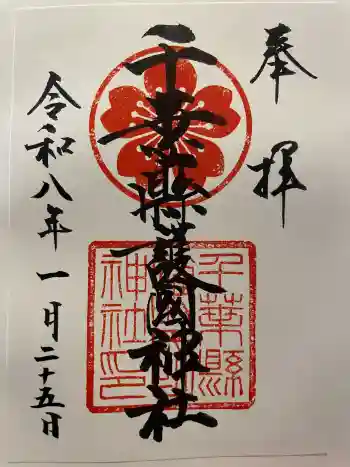 奉拝
千葉縣護國神社
千葉縣
神社印
令和八年一月二十五日